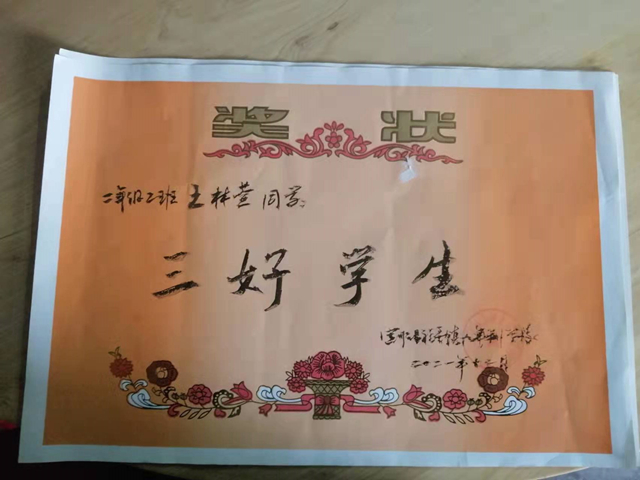 奖状
二年级二班王林萱同学:
三好学生
二〇二一年十二月